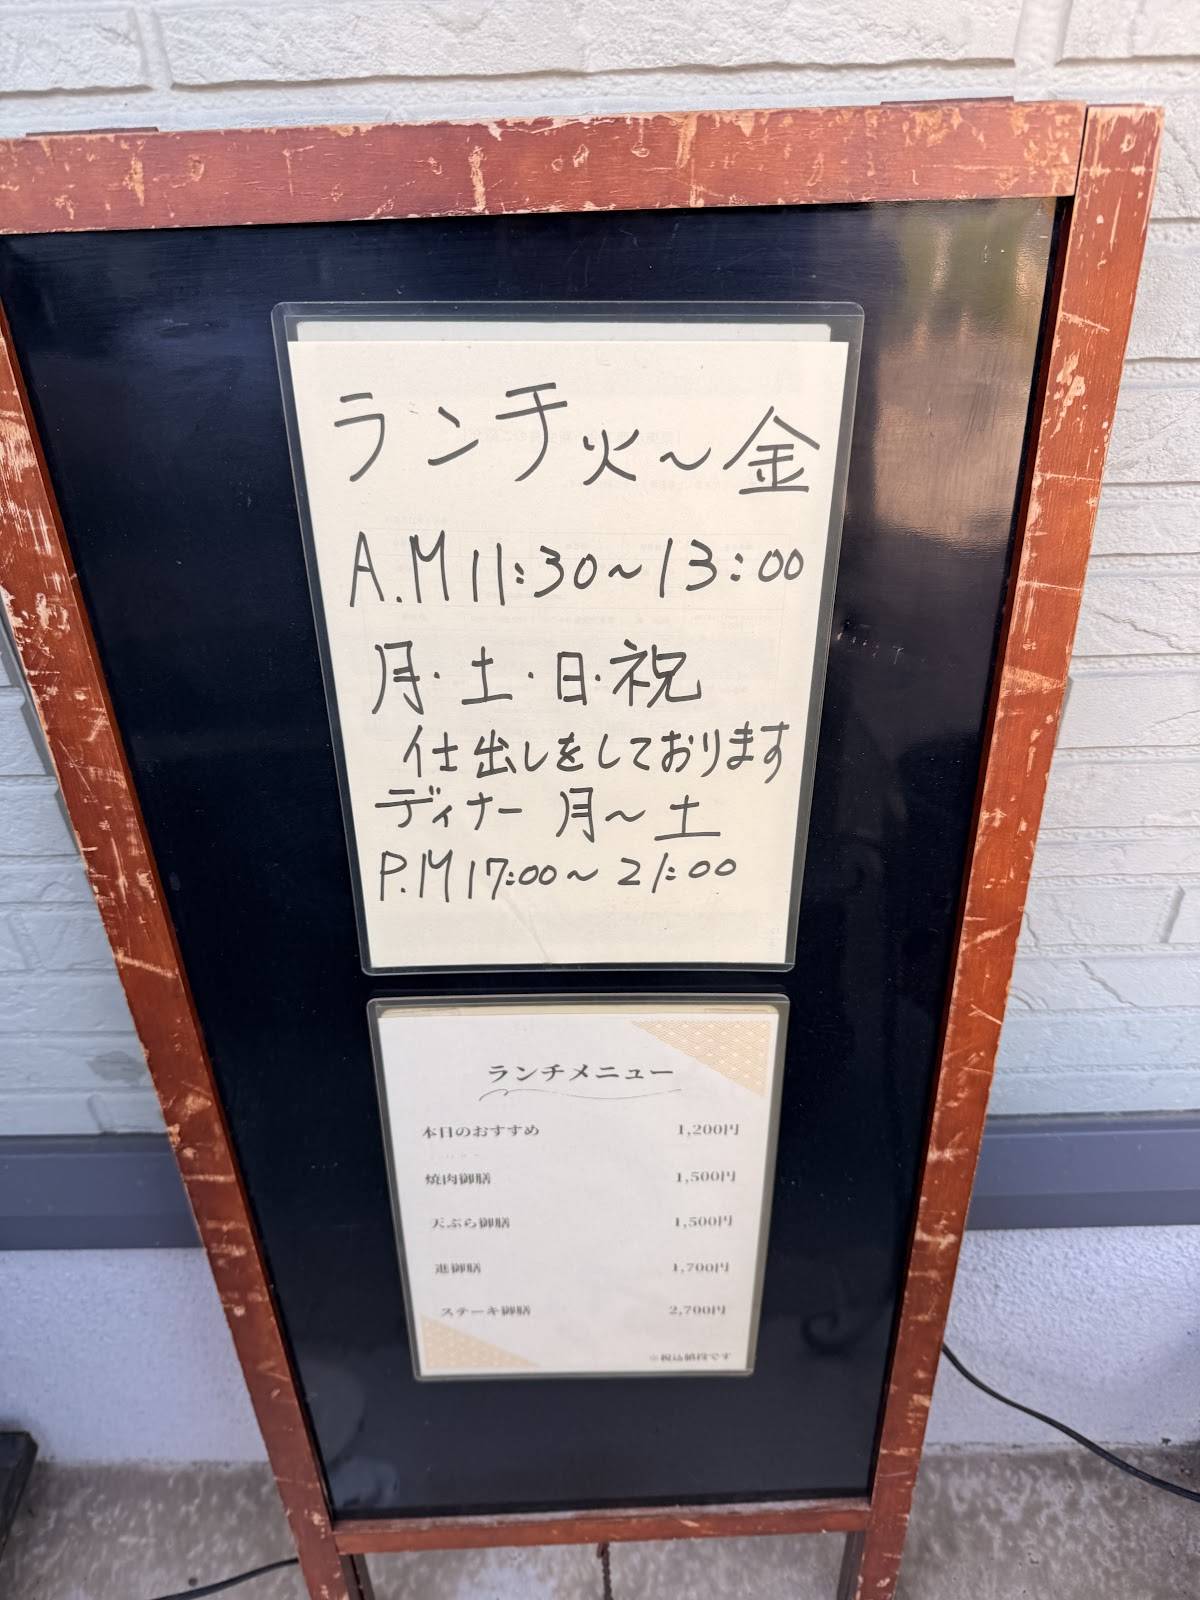 ランチ 火〜金
A.M 11:30〜13:00
月・土・日・祝
仕出しをしております
ディナー 月〜土
P.M 17:00〜21:00
ランチメニュー
本日のおすすめ 1,200円
焼肉御膳 1,500円
天ぷら御膳 1,500円
進御膳 1,700円
ステーキ御膳 2,700円
※税込価格です